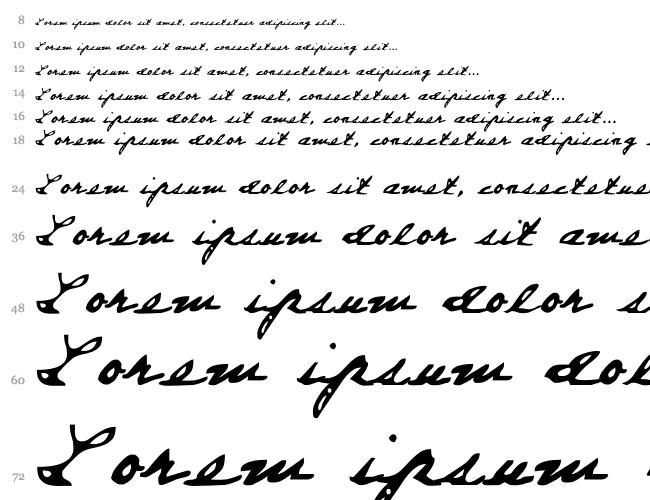 8 Lorem ipsum dolor sit amet, consectetuer adipiscing elit...
10 Lorem ipsum dolor sit amet, consectetuer adipiscing elit...
12 Lorem ipsum dolor sit amet, consectetuer adipiscing elit...
14 Lorem ipsum dolor sit amet, consectetuer adipiscing elit...
16 Lorem ipsum dolor sit amet, consectetuer adipiscing elit...
18 Lorem ipsum dolor sit amet, consectetuer adipiscing
24 Lorem ipsum dolor sit amet, consectetue
36 Lorem ipsum dolor sit ame
48 Lorem ipsum dolor s
60 Lorem ipsum dol
72 Lorem ipsum